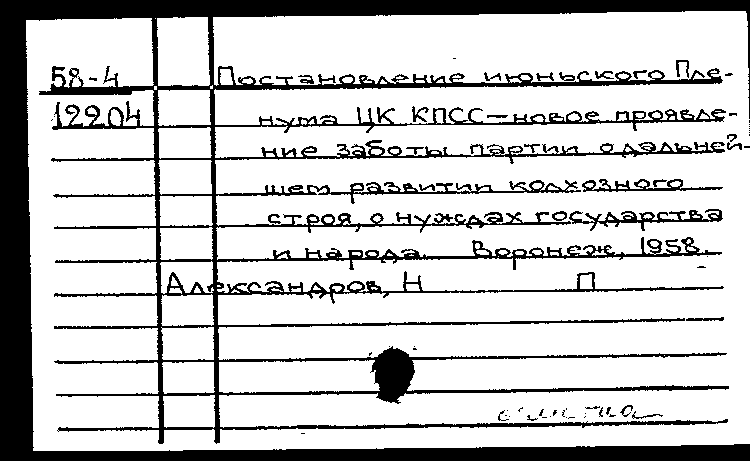 58-4 Постановление июньского Пле-
12204 нума ЦК КПСС—новое проявле-
ние заботы партии о дальней-
шем развитии колхозного
строя, о нуждах государства
и народа. Воронеж, 1958.
Александров, Н П